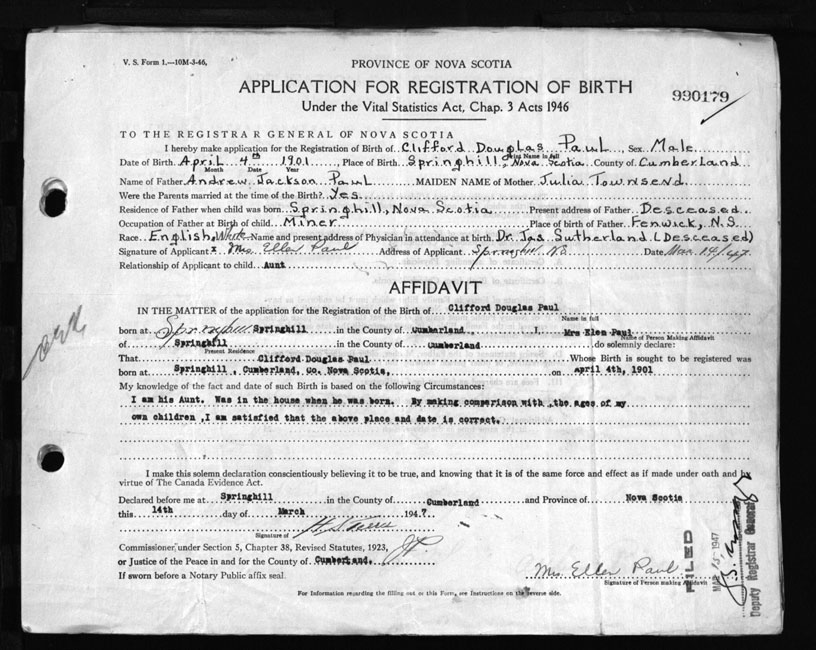 V. S. Form 1.—10M-3-46,
PROVINCE OF NOVA SCOTIA
APPLICATION FOR REGISTRATION OF BIRTH
990179
Under the Vital Statistics Act, Chap. 3 Acts 1946
TO THE REGISTRAR GENERAL OF NOVA SCOTIA
I hereby make application for the Registration of Birth of Clifford Douglas Paul Sex Male
Print Name in full
Date of Birth April 4th 1901 Place of Birth Springhill, Nova Scotia County of Cumberland
Month Date Year
Name of Father Andrew Jackson Paul MAIDEN NAME of Mother Julia Townsend
Were the Parents married at the time of the Birth? Yes
Residence of Father when child was born Springhill, Nova Scotia Present address of Father Desceased
Occupation of Father at Birth of child Miner Place of birth of Father Fenwick, N.S.
Race English, White Name and present address of Physician in attendance at birth Dr. Jas Sutherland (Desceased)
Signature of Applicant x Mrs Ellen Paul Address of Applicant Springhill NS Date Mar 14/47
Relationship of Applicant to child Aunt
AFFIDAVIT
IN THE MATTER of the application for the Registration of Birth of Clifford Douglas Paul
Name in full
born at Springhill Springhill in the County of Cumberland I, Mrs Elen Paul
Name of Person Making Affidavit
of Springhill in the County of Cumberland do solemnly declare:
Present Residence
That Clifford Douglas Paul Whose Birth is sought to be registered was
born at Springhill , Cumberland, Co. Nova Scotia, on april 4th, 1901
My knowledge of the fact and date of such Birth is based on the following Circumstances:
I am his Aunt. Was in the house when he was born. By making comparison with the ages of my
own children ,I am satisfied that the above place and date is correct.
I make this solemn declaration conscientiously believing it to be true, and knowing that it is of the same force and effect as if made under oath and by
virtue of The Canada Evidence Act.
Declared before me at Springhill in the County of Cumberland and Province of Nova Scotia
this 14th day of March 1947
Signature of
Commissioner, under Section 5, Chapter 38, Revised Statutes, 1923, J.P.
or Justice of the Peace in and for the County of Cumberland.
If sworn before a Notary Public affix seal.
Mrs Ellen Paul
Signature of Person making Affidavit
FILED
MAR 15 1947
Deputy Registrar General
For Information regarding the filling out or this Form, see Instructions on the reverse side.